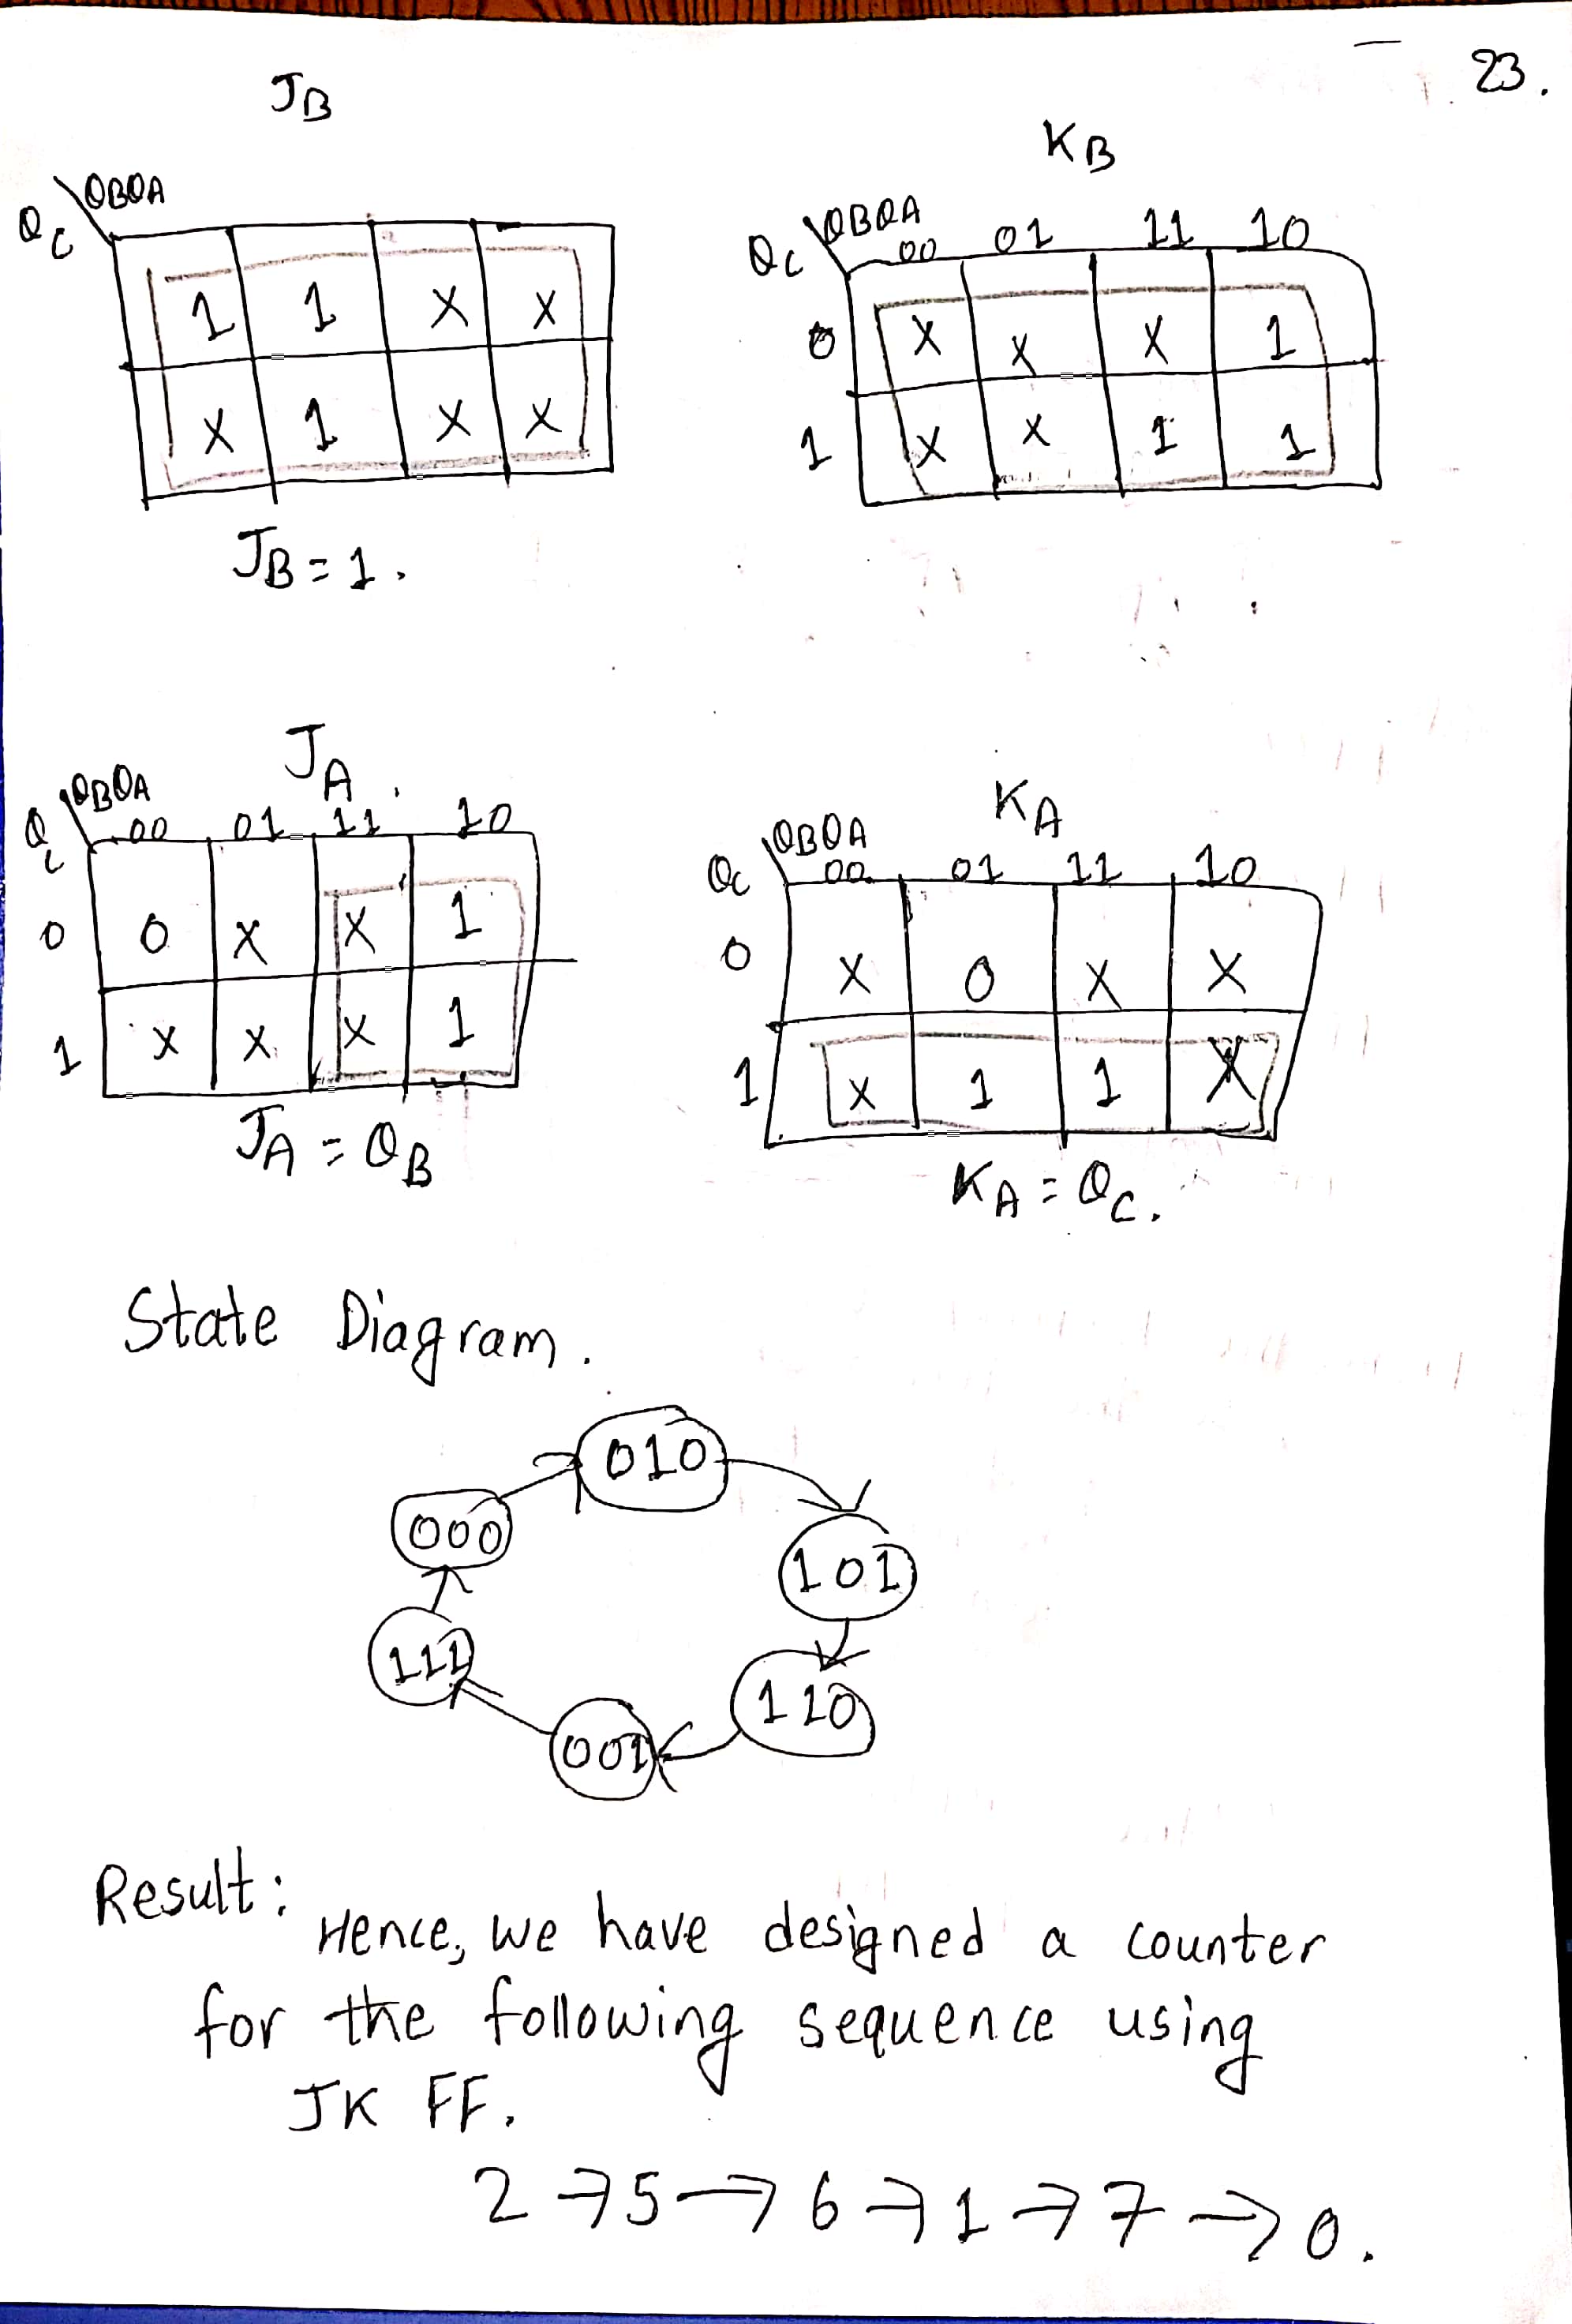 23.
JB
KB
QBQA
QC
1 1 X X
X 1 X X
JB = 1.
QBQA
QC
00 01 11 10
0 X X X 1
1 X X 1 1
JA.
QBQA
QC
00 01 11 10
0 0 X X 1
1 X X X 1
JA = QB
KA
QBQA
QC
00 01 11 10
0 X 0 X X
1 X 1 1 X
KA = QC.
State Diagram.
010
000
101
111
110
001
Result:
Hence, we have designed a counter
for the following sequence using
JK FF.
2 → 5 → 6 → 1 → 7 → 0.